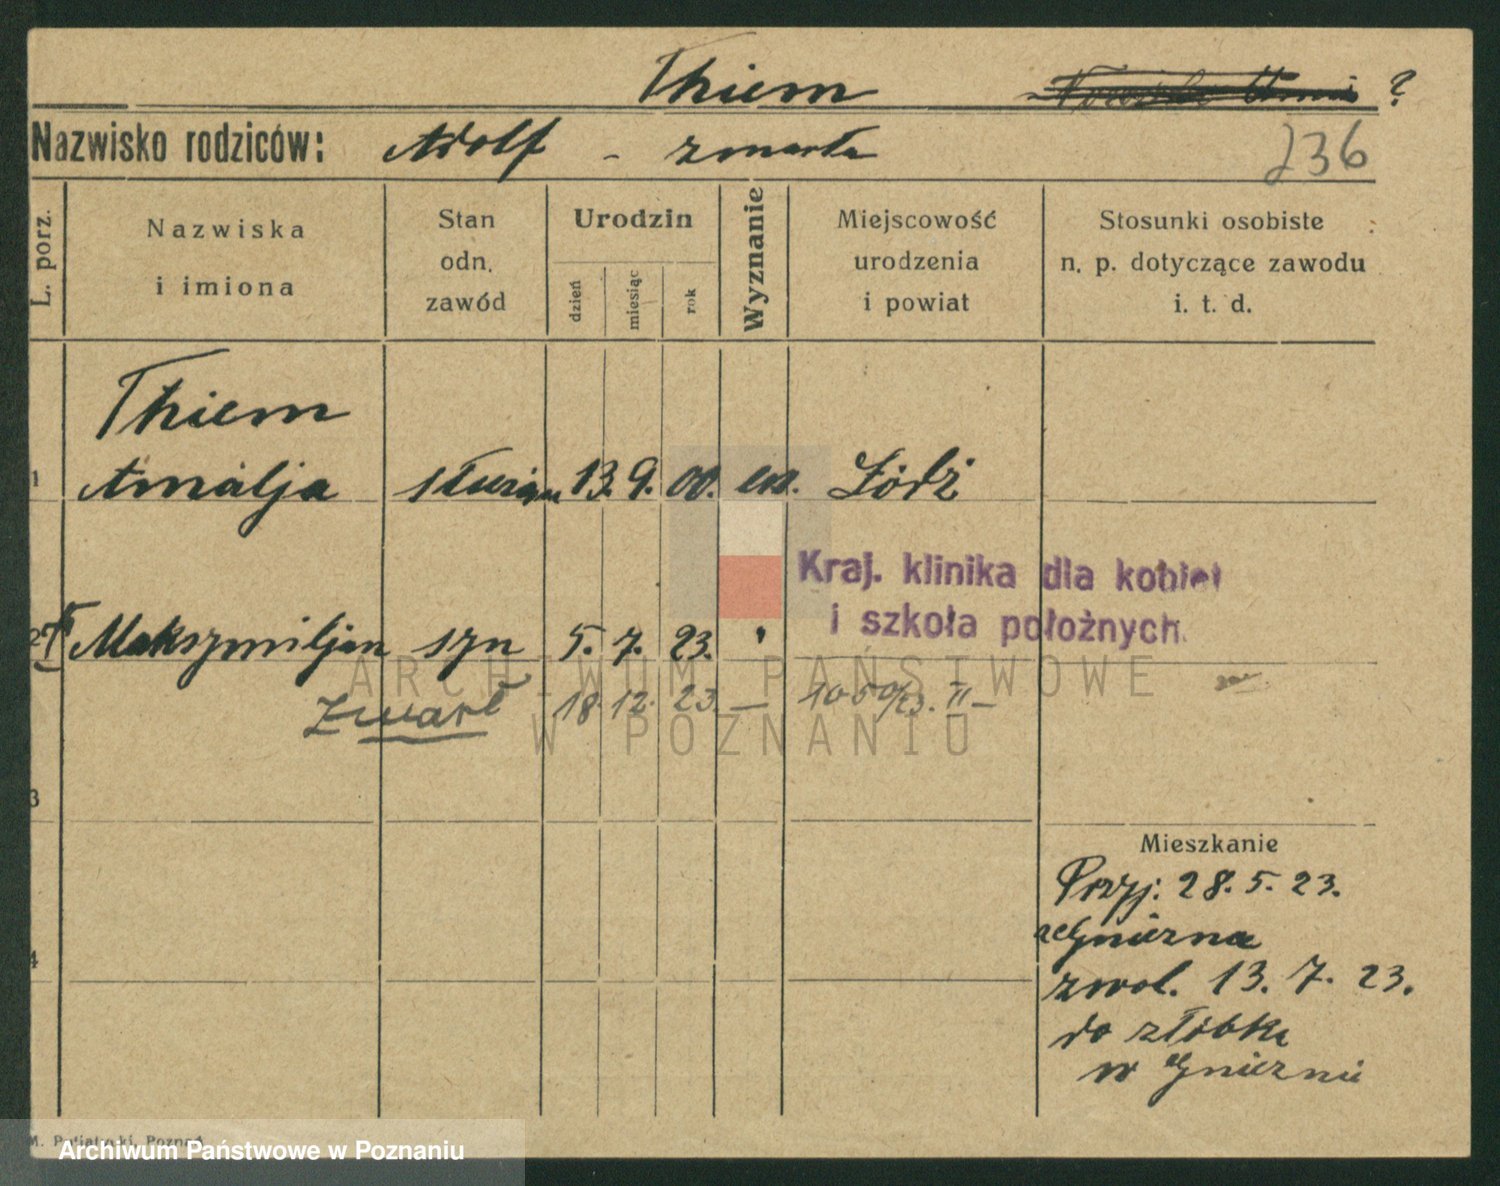 Thiem ?
Nazwisko rodziców: Adolf - zmarła
236
L. porz.
Nazwiska
i imiona
Stan
odn.
zawód
Urodzin
dzień
miesiąc
rok
Wyznanie
Miejscowość
urodzenia
i powiat
Stosunki osobiste
n. p. dotyczące zawodu
i. t. d.
Thiem
1 Amalja 13. 9. 00. ew. Łódź
Kraj. klinika dla kobiet
i szkoła położnych.
2 Maksymiljan syn 5. 7. 23. "
Zmarł 18. 12. 23. —
3
4
Mieszkanie
Przyj: 28. 5. 23.
z Gniezna
zwol. 13. 7. 23.
do złóbka
w Gnieznie
ARCHIWUM PAŃSTWOWE
W POZNANIU
Archiwum Państwowe w Poznaniu